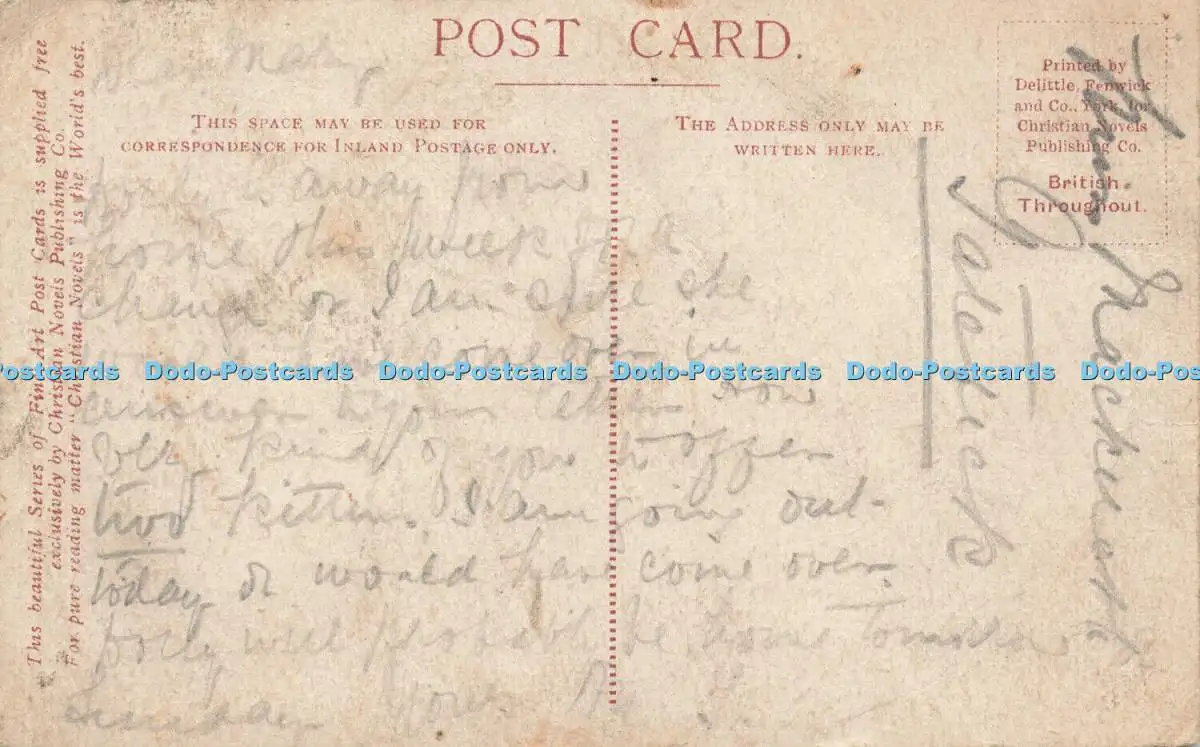 POST CARD.
THIS SPACE MAY BE USED FOR
CORRESPONDENCE FOR INLAND POSTAGE ONLY.
THE ADDRESS ONLY MAY BE
WRITTEN HERE.
Printed by
Delittle, Fenwick
and Co., York, for
Christian Novels
Publishing Co.
British
Throughout.
This beautiful Series of Fine Art Post Cards is supplied free
exclusively by Christian Novels Publishing Co.
For pure reading matter "Christian Novels" is the World's best.
away from
home this week for a
change or I am sure she
would have come over in
answer to your letter How
very kind of you to offer
two kittens. I am going out
today or would have come over.
Polly will probably be home tomorrow
Sunday
Dodo-Postcards Dodo-Postcards Dodo-Postcards Dodo-Postcards Dodo-Postcards Dodo-Postcards